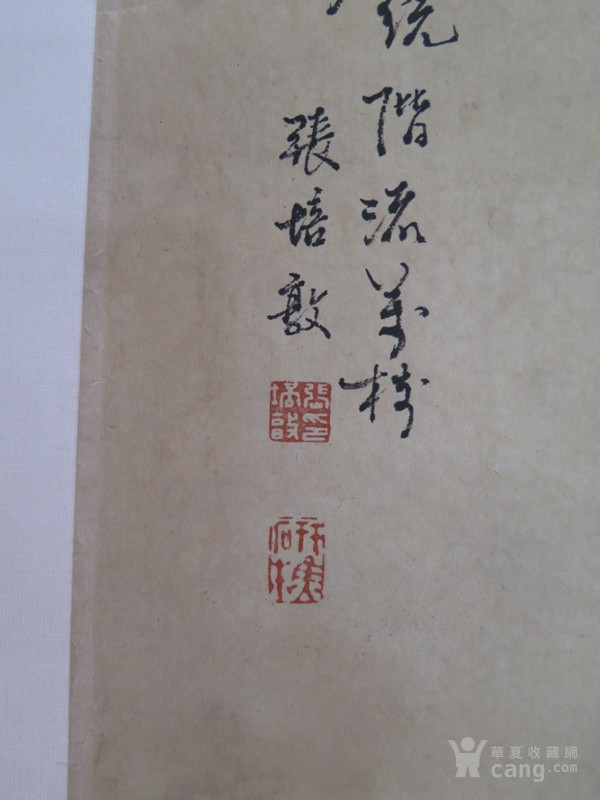 繞階流萬樹
張培敦
張印培敦
研樵
華夏收藏網
cang.com